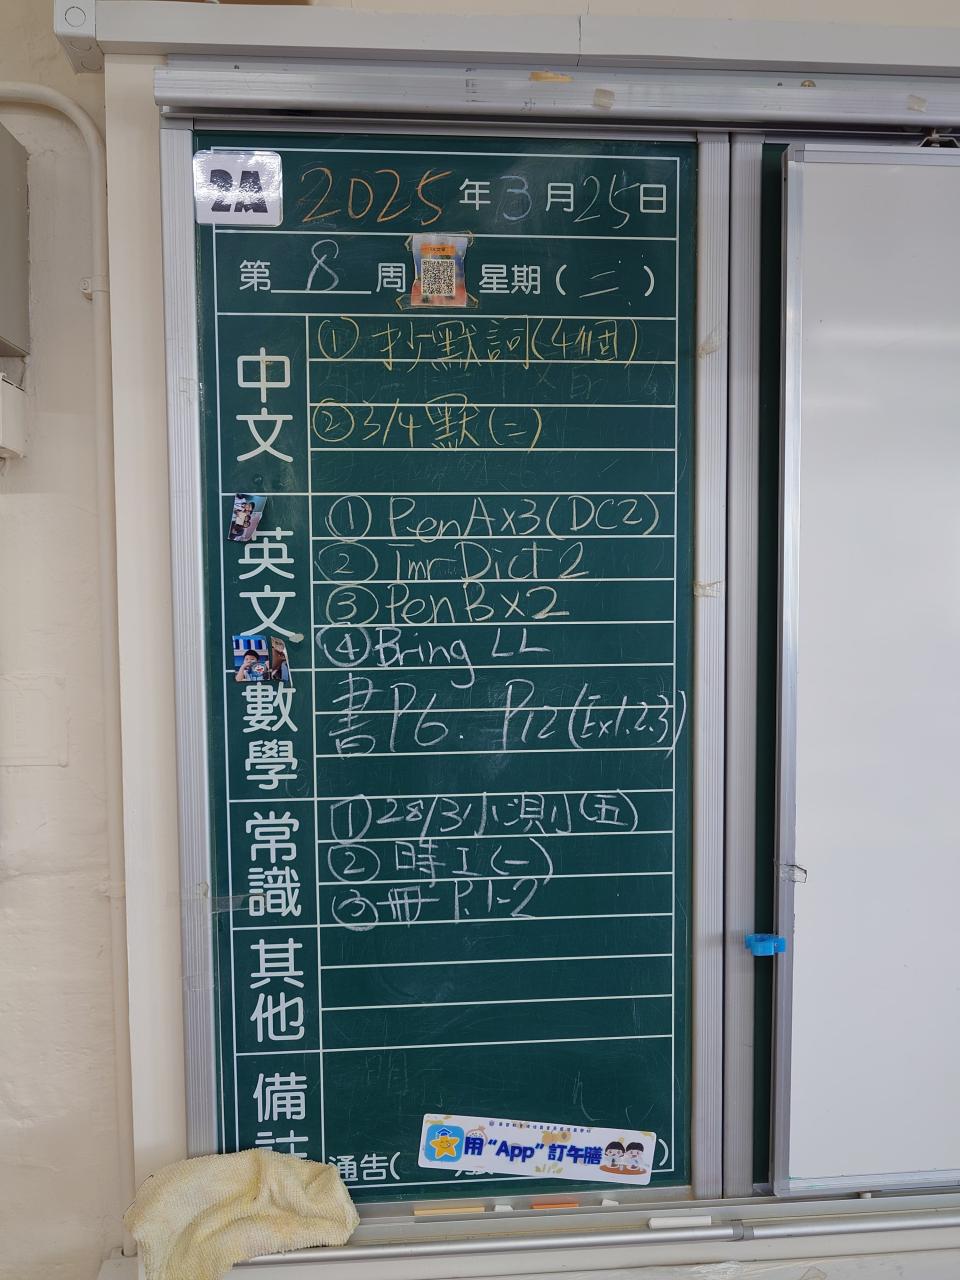 2A 2025年3月25日
第8周 星期(二)
中文
① 抄默詞(4個)
② 3/4默(二)
英文
① PenA×3(DC2)
② Tmr Dict 2
③ PenB×2
④ Bring LL
數學
書P6. P12(Ex1.2.3)
常識
① 28/3小測(五)
② 時工(一)
③ 冊 P.1-2
其他
備註
通告( )
用“App”訂午膳